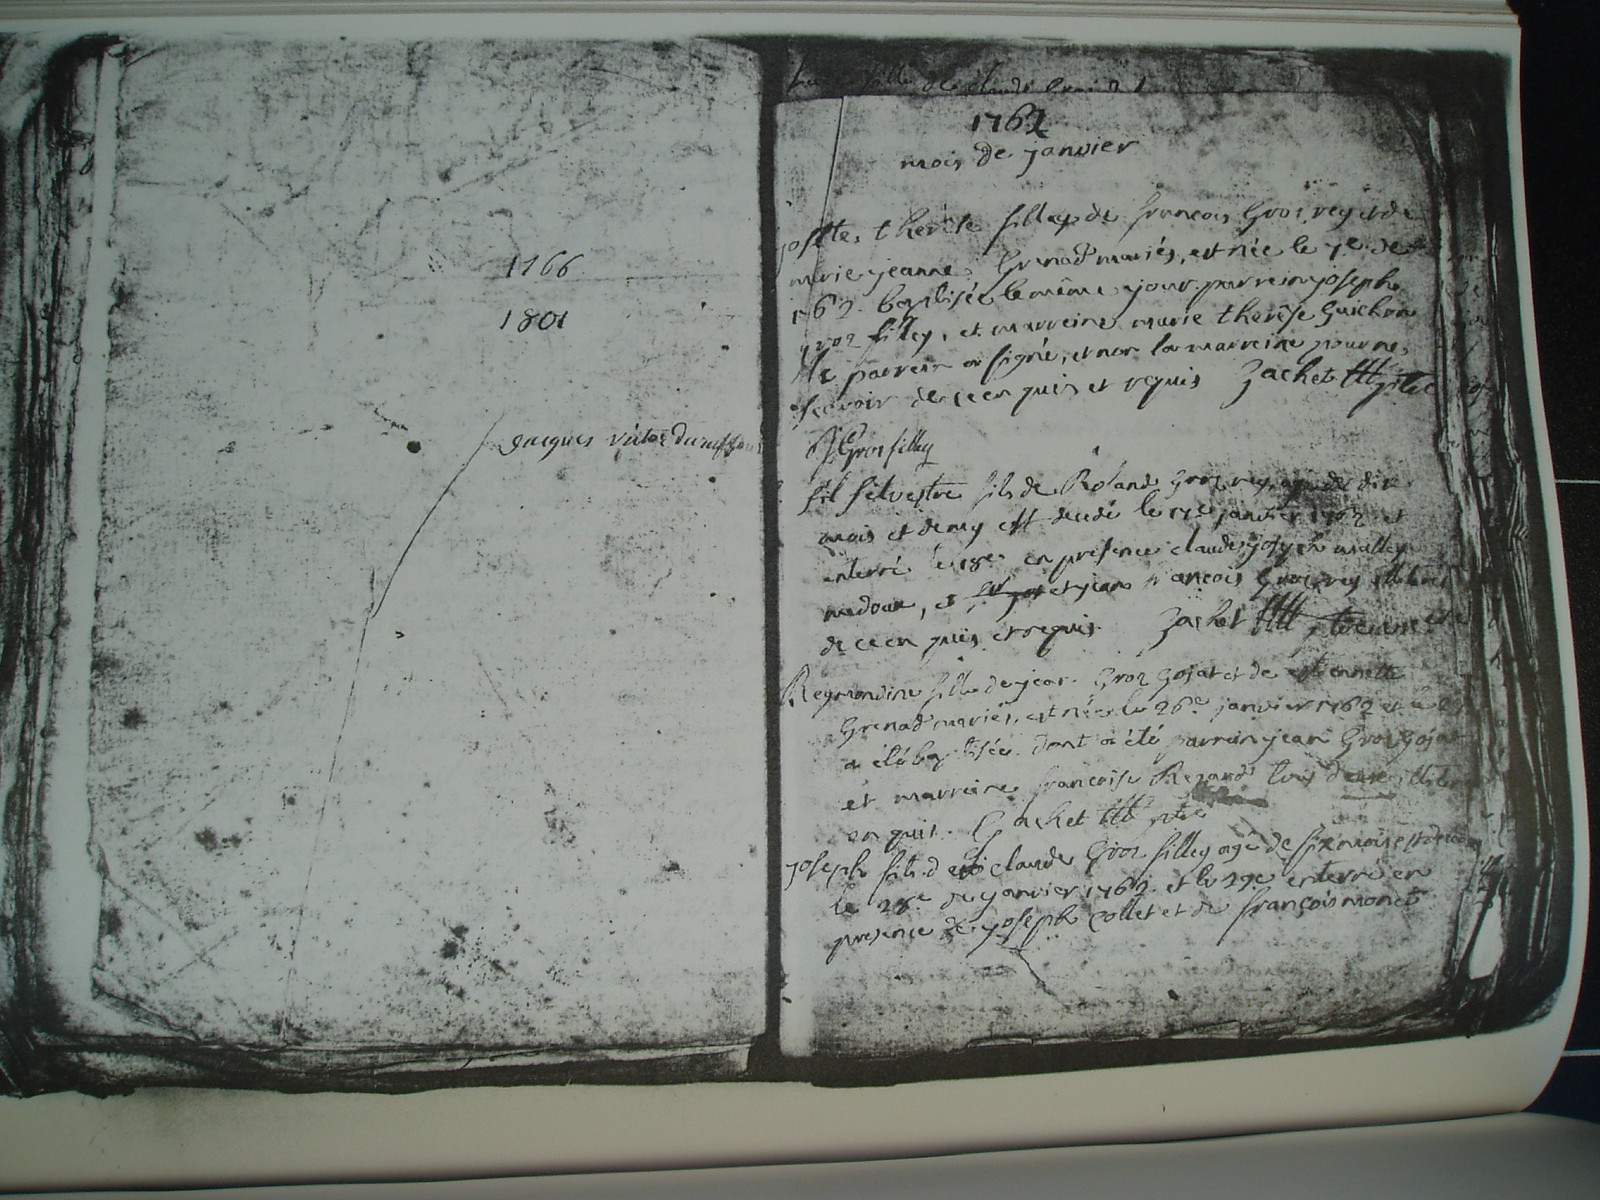 1766
1801
jacques victor
fille de claude
1762
mois de janvier
josette, therese fille de françois Groz rey et de
marie jeanne Grenard mariés, est née le 7e de
1762. baptisée le même jour. parrein joseph
groz filley, et marreine marie therêse Guichon
le parrein a signé, et non la marreine pour ne
scavoir de ce enquis et requis Zachet
J Groz filley
silvestre fils de Roland Groz rey agé de dix
mois et demy est decedé le 17e janvier 1762 et
enterré le 18e en presence claude joseph malley
et jean françois Groz rey illiteres
de ce enquis et requis. Zachet
Reymondine fille de jean Groz Gojat et de
Grenard mariés, est née le 26e janvier 1762 et le
a été baptisée. dont a été parrein jean Groz Gojat
et marreine françoise Regard tous deux
enquis. Gachet ptre
joseph fils de claude Groz filley agé de six mois est decedé
le 28e de janvier 1762. et le 29e enterré en
presence de joseph collet et de françois monet